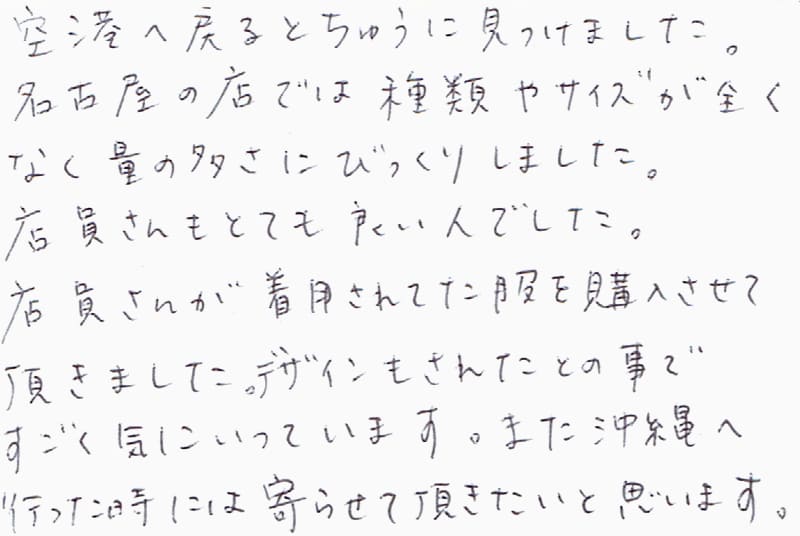 空港へ戻るとちゅうに見つけました。
名古屋の店では種類やサイズが全く
なく量の多さにびっくりしました。
店員さんもとても良い人でした。
店員さんが着用されてた服を購入させて
頂きました。デザインもされたとの事で
すごく気にいっています。また沖縄へ
行った時には寄らせて頂きたいと思います。